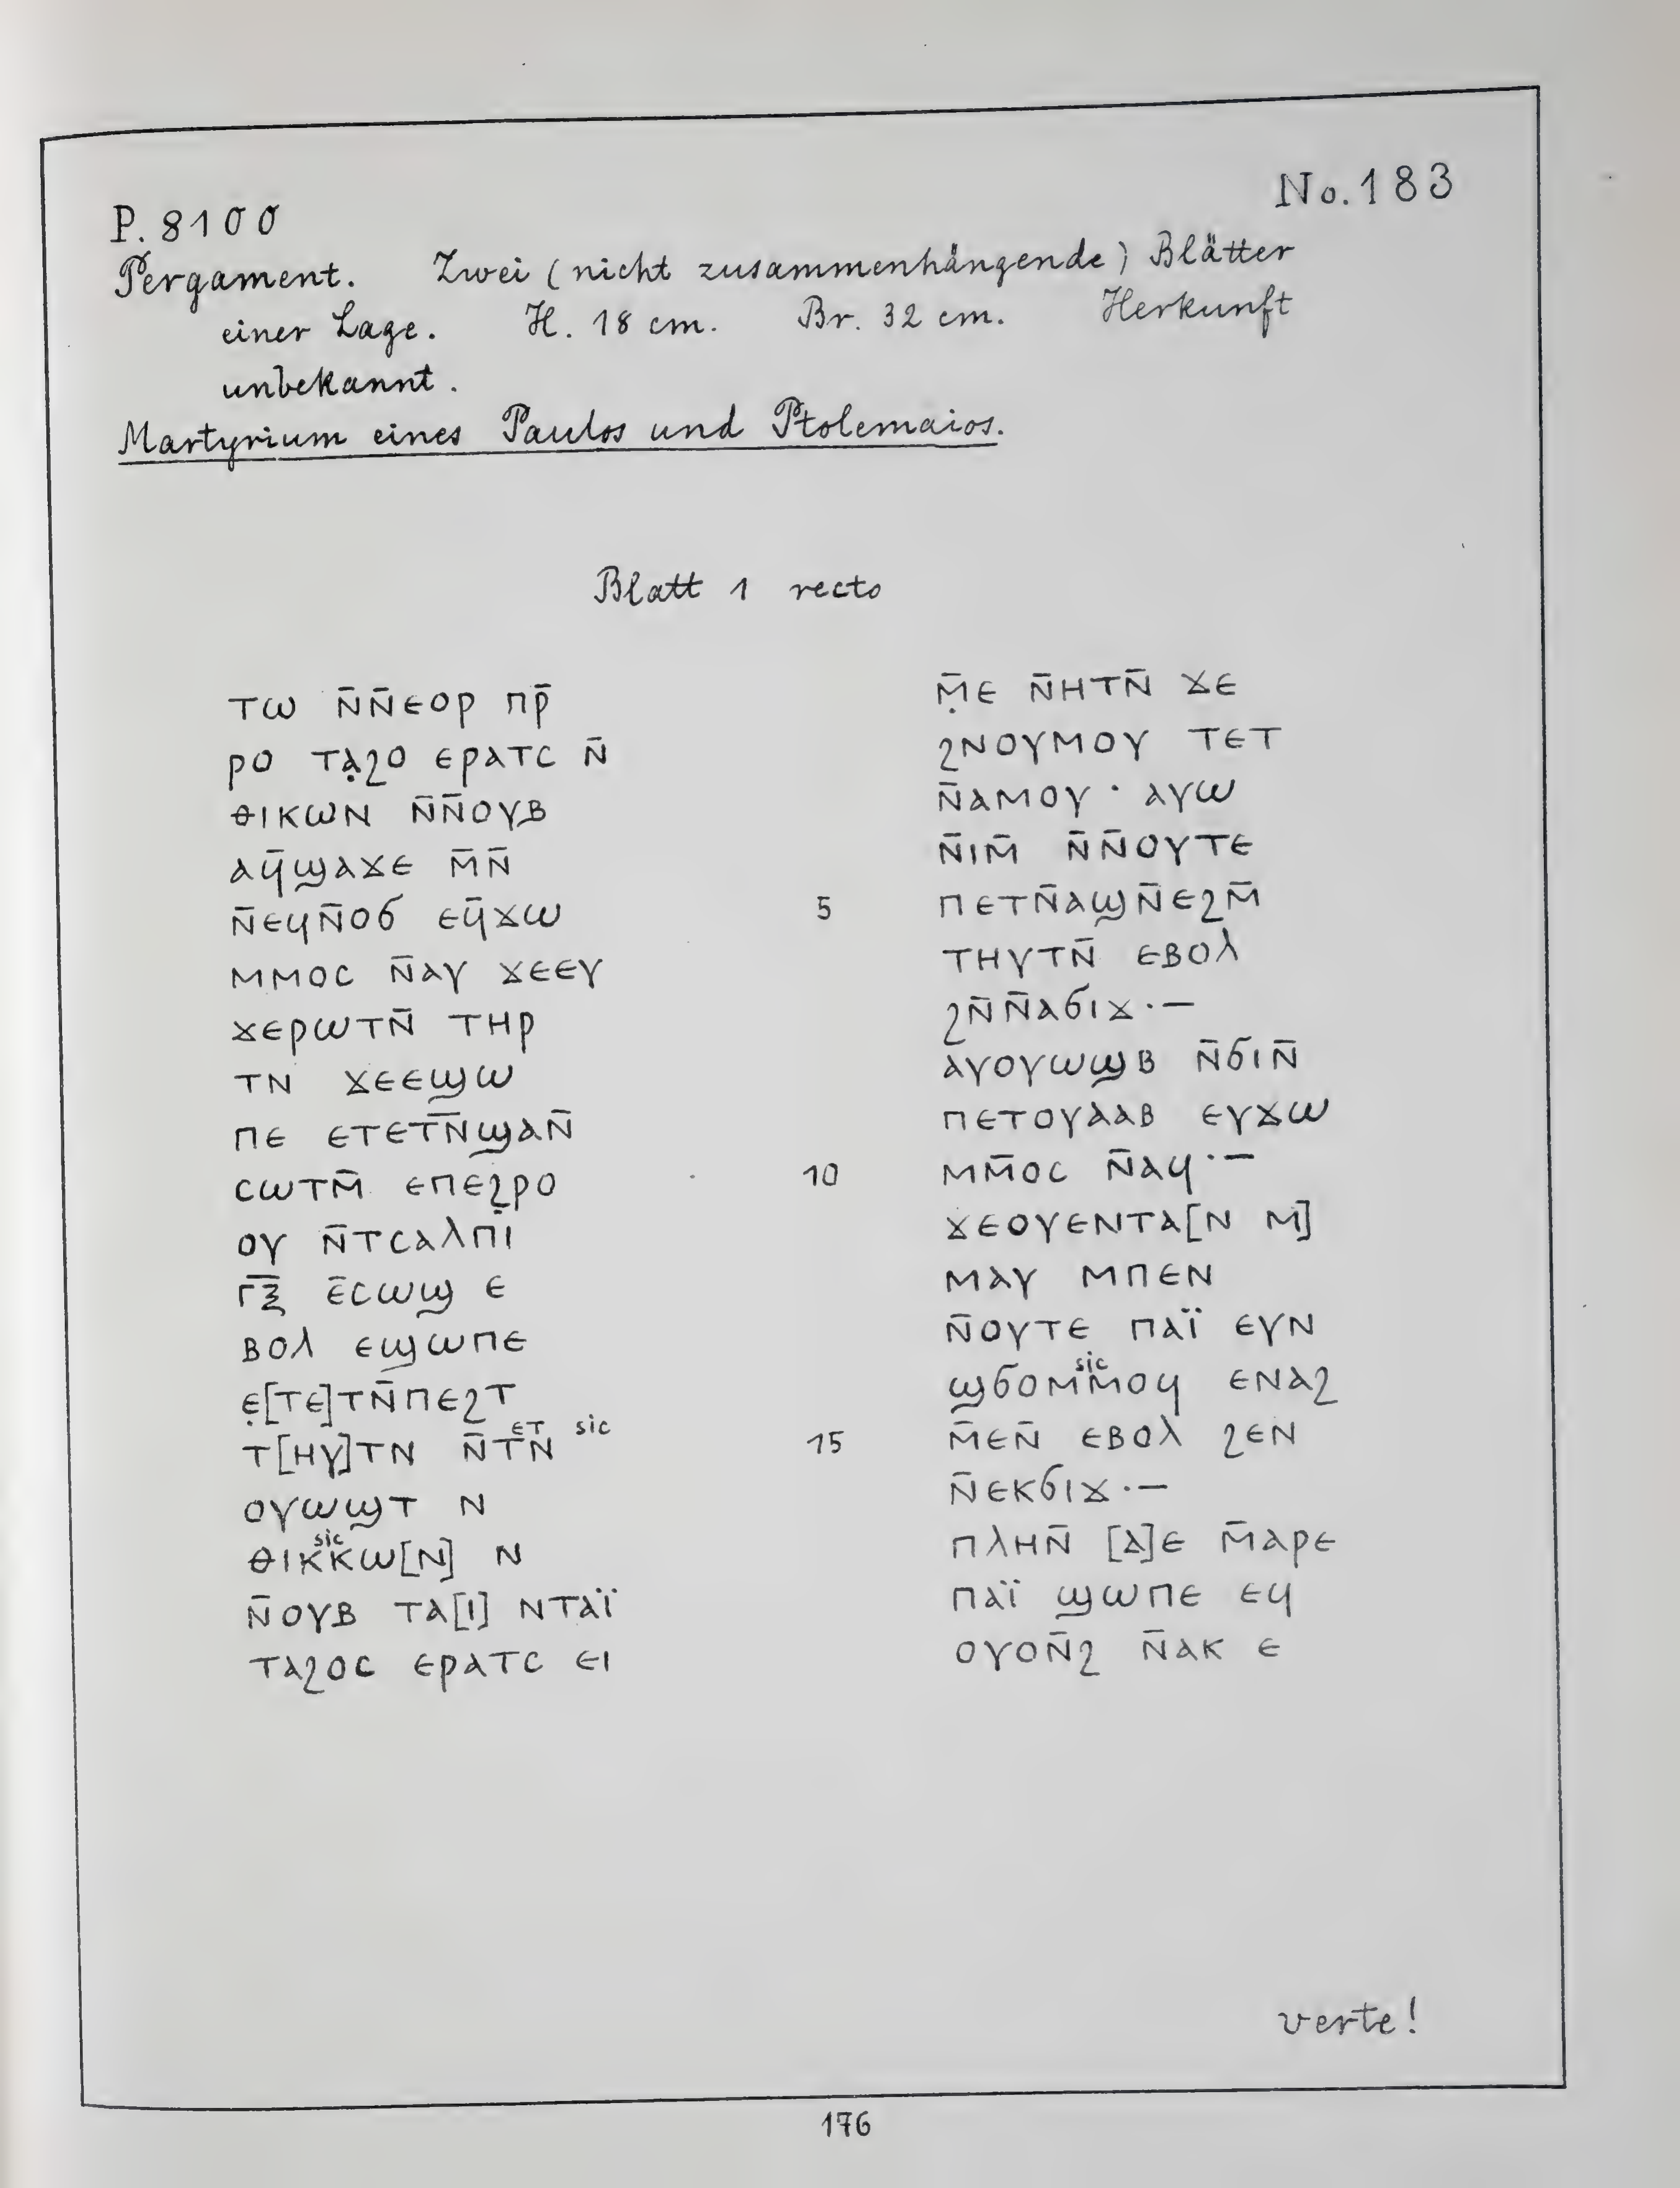 No. 183
P. 8100
Pergament. Zwei (nicht zusammenhängende) Blätter
einer Lage. H. 18 cm. Br. 32 cm. Herkunft
unbekannt.
Martyrium eines Paulos und Ptolemaios.
Blatt 1 recto
ⲧⲱ ⲛ̄ⲛ̄ⲉⲟⲣ ⲡⲣ̄
ⲣⲟ ⲧⲁ̣ϩⲟ ⲉⲣⲁⲧⲥ ⲛ̄
ⲑⲓⲕⲱⲛ ⲛ̄ⲛ̄ⲟⲩⲃ
ⲁϥ̄ϣⲁϫⲉ ⲙ̄ⲛ̄
ⲛ̄ⲉϥⲛ̄ⲟϭ ⲉϥ̄ϫⲱ
ⲙⲙⲟⲥ ⲛ̄ⲁⲩ ϫⲉⲉⲩ
ϫⲉⲣⲱⲧⲛ̄ ⲧⲏⲣ
ⲧⲛ ϫⲉⲉϣⲱ
ⲡⲉ ⲉⲧⲉⲧ̄ⲛ̄ϣⲁⲛ̄
ⲥⲱⲧⲙ̄ ⲉⲡⲉϩ̣ⲣⲟ
ⲟⲩ ⲛ̄ⲧⲥⲁⲗⲡⲓ̇
ⲅ̄ⲝ̄ ⲉ̄ⲥⲱϣ ⲉ
ⲃⲟⲗ ⲉϣⲱⲡⲉ
ⲉ̣[ⲧⲉ]ⲧⲛ̄ⲡⲉϩⲧ
ⲧ[ⲏⲩ]ⲧⲛ ⲛ̄ⲧⲛ̄ ⲉⲧ sic
ⲟⲩⲱϣⲧ ⲛ
ⲑⲓⲕⲕⲱ[ⲛ] ⲛ sic
ⲛ̄ⲟⲩⲃ ⲧⲁ[ⲓ] ⲛⲧⲁⲓ̈
ⲧⲁϩⲟⲥ ⲉⲣⲁⲧⲥ ⲉⲓ
5
10
15
ⲙ̣̄ⲉ ⲛ̄ⲏⲧⲛ̄ ϫⲉ
ϩⲛⲟⲩⲙⲟⲩ ⲧⲉⲧ
ⲛ̄ⲁⲙⲟⲩ · ⲁⲩⲱ
ⲛ̄ⲓⲙ̄ ⲛ̄ⲛ̄ⲟⲩⲧⲉ
ⲡⲉⲧⲛ̄ⲁϣⲛ̄ⲉϩⲙ̄
ⲧⲏⲩⲧⲛ̄ ⲉⲃⲟⲗ
ϩⲛ̄ⲛ̄ⲁϭⲓϫ·—
ⲁⲩⲟⲩⲱϣⲃ ⲛ̄ϭⲓⲛ̄
ⲡⲉⲧⲟⲩⲁⲁⲃ ⲉⲩϫⲱ
ⲙⲙ̄ⲟⲥ ⲛ̄ⲁϥ·—
ϫⲉⲟⲩⲉⲛⲧⲁ[ⲛ ⲙ]
ⲙⲁⲩ ⲙⲡⲉⲛ
ⲛ̄ⲟⲩⲧⲉ ⲡⲁⲓ̈ ⲉⲩⲛ
ϣϭⲟⲙⲙⲟϥ ⲉⲛⲁϩ sic
ⲙ̄ⲉⲛ̄ ⲉⲃⲟⲗ ϩⲉⲛ
ⲛ̄ⲉⲕϭⲓϫ·—
ⲡⲗⲏⲛ̄ [ⲇ]ⲉ ⲙ̄ⲁⲣⲉ
ⲡⲁⲓ̈ ϣⲱⲡⲉ ⲉϥ
ⲟⲩⲟⲛ̄ϩ ⲛ̄ⲁⲕ ⲉ
verte!
176